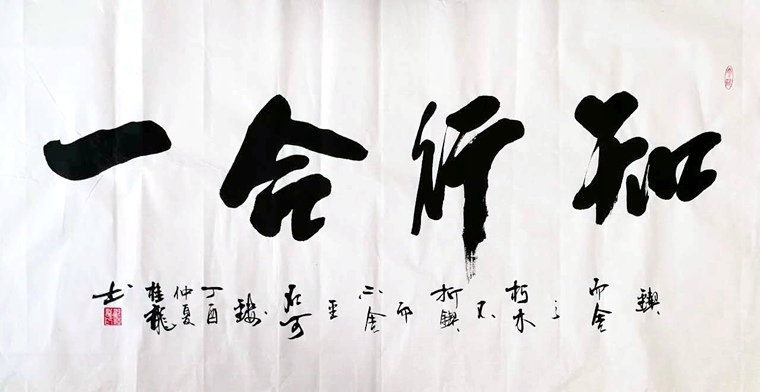 知行合一
鍥而舍之朽木不折鍥而不舍金石可鏤丁酉仲夏桂龍书